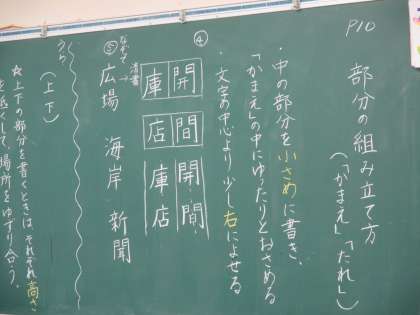 P10
部分の組み立て方
(「かまえ」「たれ」)
・中の部分を小さめに書き、
「かまえ」の中にゆったりとおさめる
・文字の中心より少し右によせる
④
開間
開間
庫店
庫店
清書
⑤広場 海岸 新聞
うら
(上下)
☆上下の部分を書くときは、それぞれ高さ
を低くして、場所をゆずり合う。